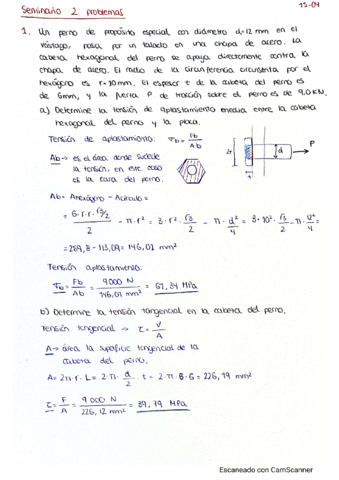 Seminario 2 problemas
15-04
1. Un perno de propósito especial con diámetro d=12 mm en el
vástago, pasa por un taladro en una chapa de acero. La
cabeza hexagonal del perno se apoya directamente contra la
chapa de acero. El radio de la circunferencia circunscrita por el
hexágono es r=10mm. El espesor t de la cabeza del perno es
de 6mm, y la fuerza P de tracción sobre el perno es de 9.0 KN.
a) Determine la tensión de aplastamiento media entre la cabeza
hexagonal del perno y la placa.
Tensión de aplastamiento: σb = Fb / Ab
Ab → es el área donde sucede
la tensión, en este caso
es la cara del perno.
2r
d
P
Ab = Ahexágono - Acírculo =
= 6·r·r·√3/2 / 2 - π·r² = 3·r²·√3/2 - π·d²/4 = 3·10²·√3/2 - π·12²/4 =
= 259,8 - 113,09 = 146,01 mm²
Tensión aplastamiento:
σb = Fb/Ab = 9000 N / 146,01 mm² = 61,34 MPa
b) Determine la tensión tangencial en la cabeza del perno.
Tensión tangencial → τ = V/A
A → área la superficie tangencial de la
cabeza del perno.
A = 2π·r·L = 2·π·d/2·t = 2·π·6·6 = 226,19 mm²
τ = F/A = 9000 N / 226,12 mm² = 39,79 MPa
Escaneado con CamScanner